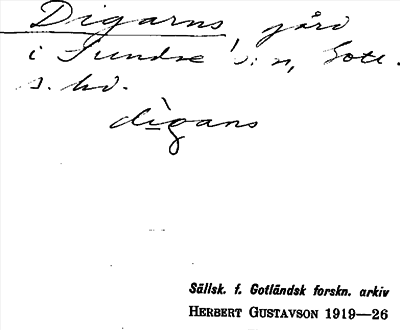 Digarns, gård
i Sundre s:n, Gotl.
s. hd.
dìgans
Sällsk. f. Gotländsk forskn. arkiv
HERBERT GUSTAVSON 1919—26